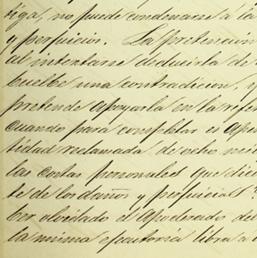 tiga, no puede condenarse á la
y perjuicios. La pretención
al intentarse deducirla de
vuelve una contradicion, y
pretende apoyarla en la refe
cuando para completar el Apo
tidad reclamada de ocho mil
las costas personales que dice
te de los daños y perjuicios?
ber olvidado el Apoderado del
la misma ejecutoria libra a